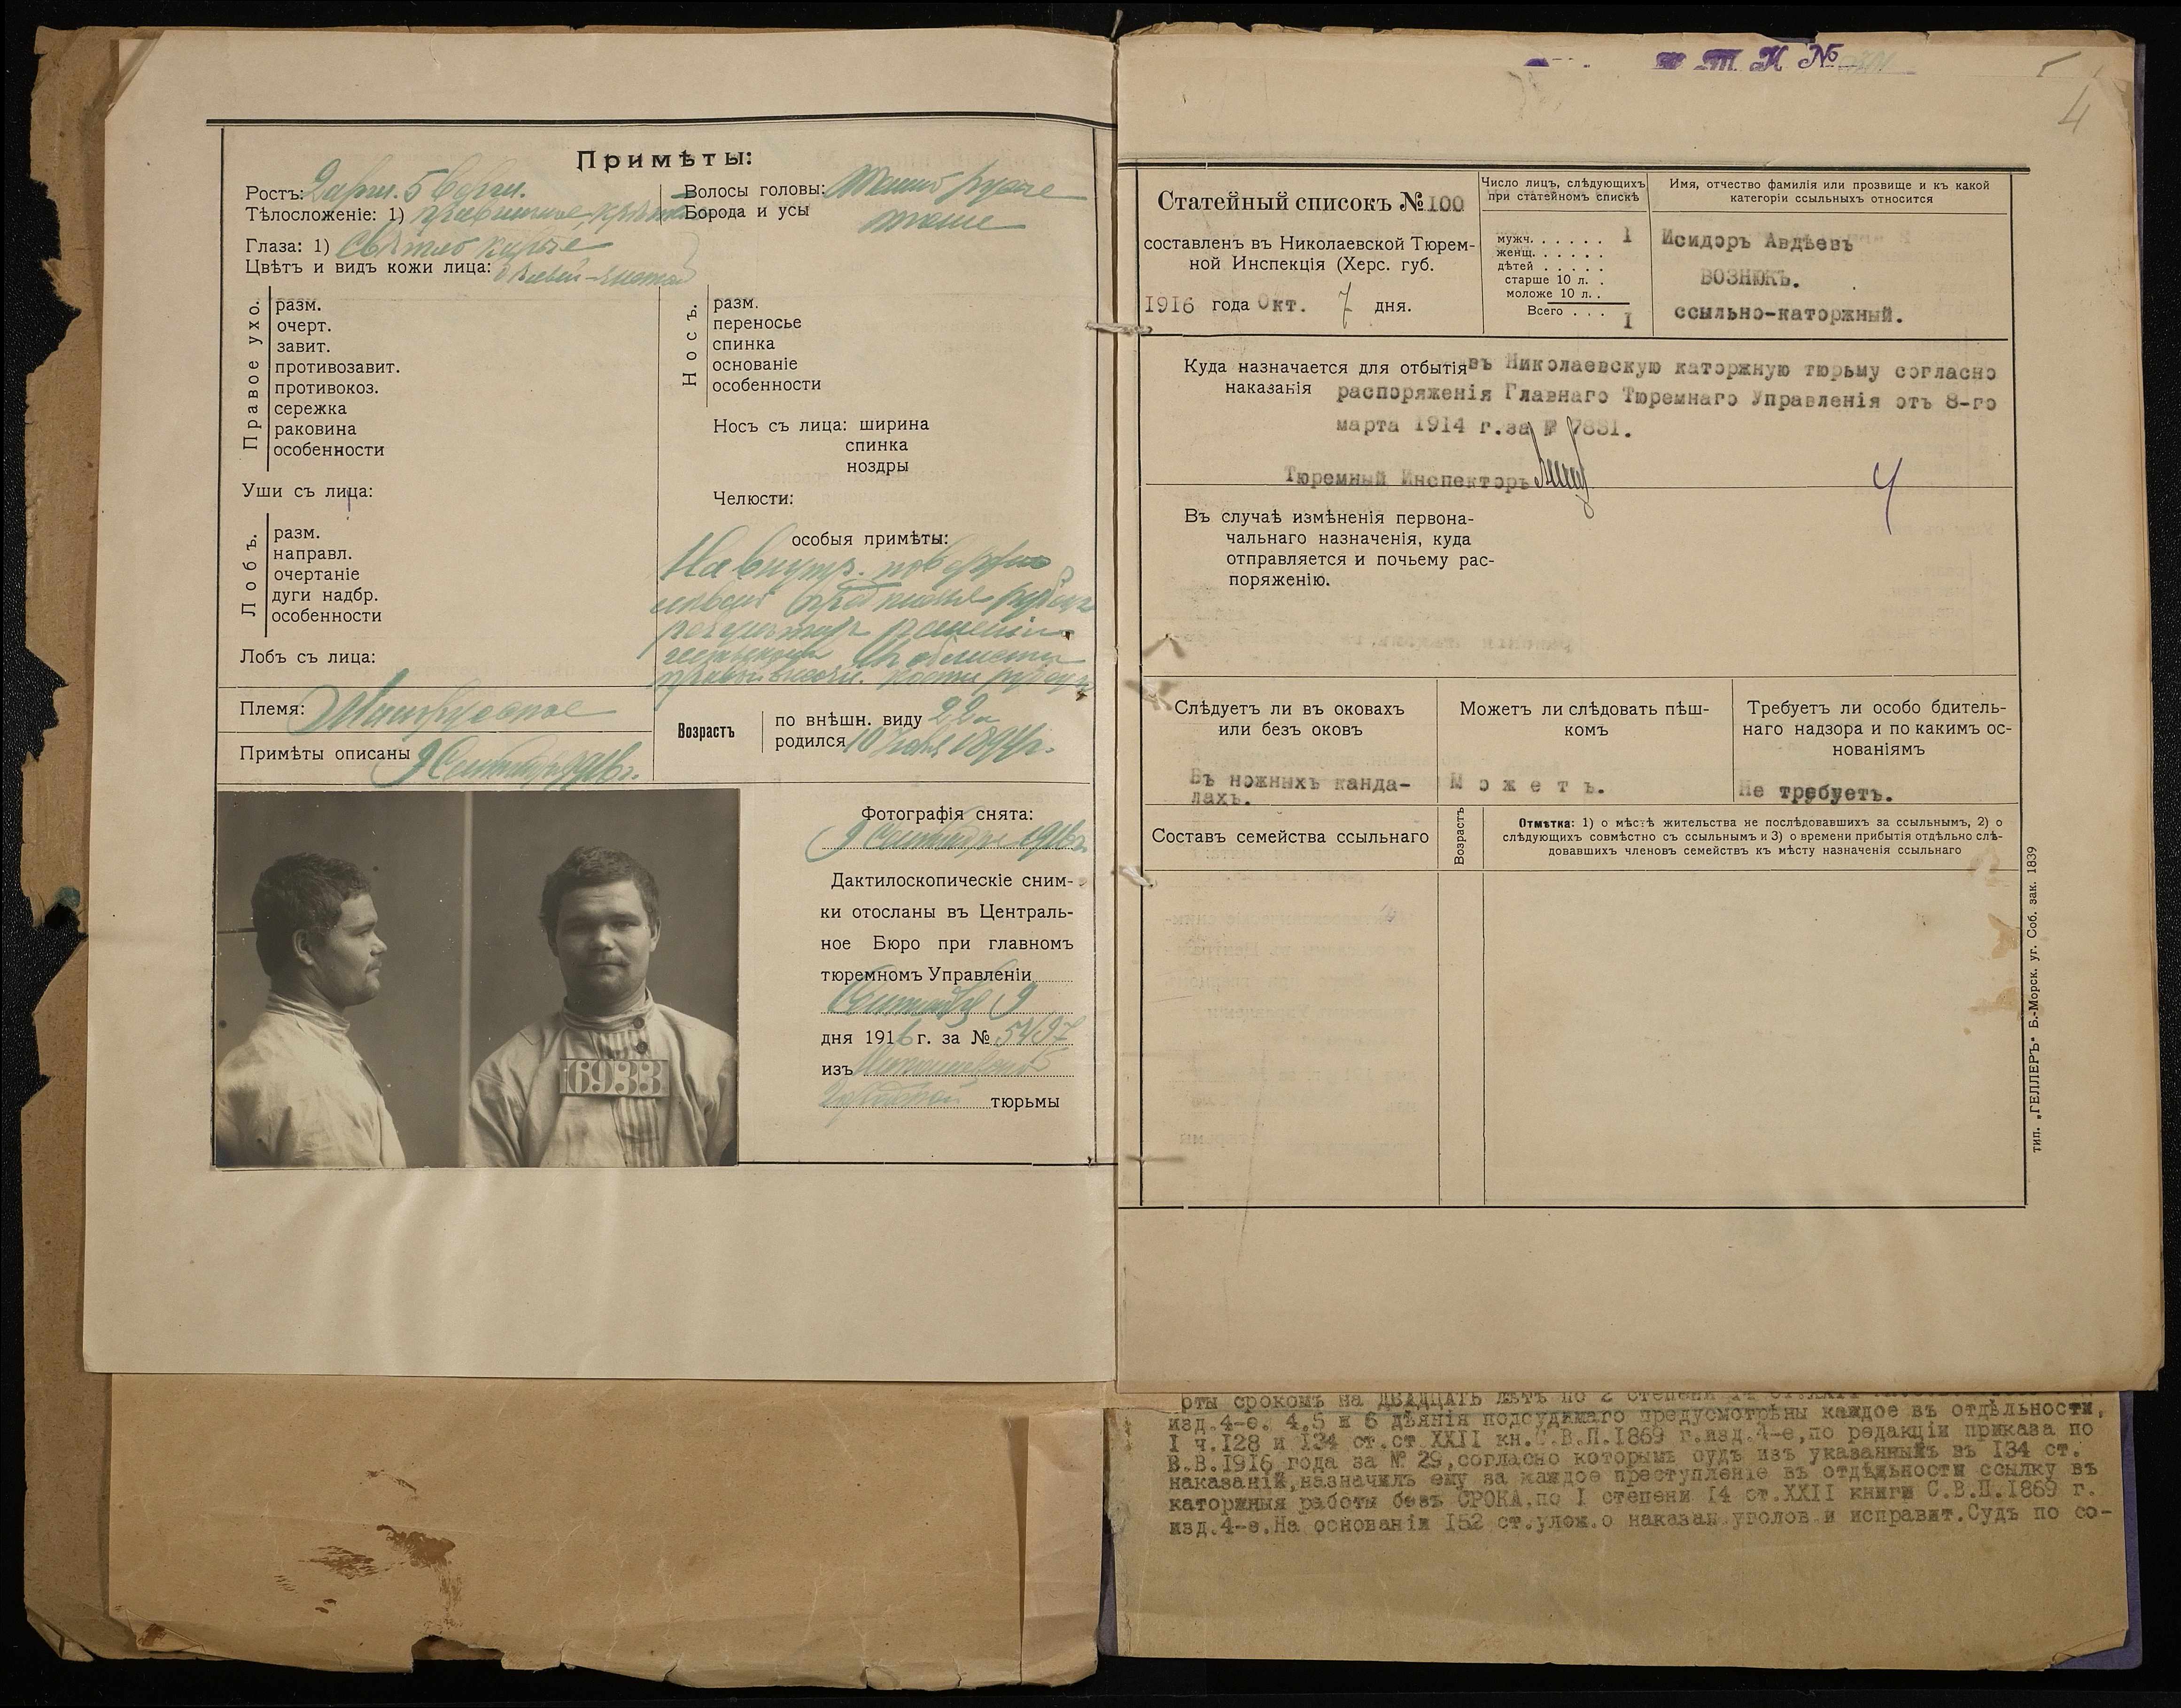 Примѣты:
Ростъ: 2 арш. 5 верш.
Волосы головы: темно русые
Тѣлосложеніе: 1)
Борода и усы
Глаза: 1) Свѣтло карые
Цвѣтъ и видъ кожи лица:
Правое ухо.
разм.
очерт.
завит.
противозавит.
противокоз.
сережка
раковина
особенности
Носъ.
разм.
переносье
спинка
основаніе
особенности
Носъ съ лица: ширина
спинка
ноздры
Уши съ лица:
Челюсти:
Лобъ.
разм.
направл.
очертаніе
дуги надбр.
особенности
Лобъ съ лица:
особыя примѣты:
На внутр.
Племя:
Примѣты описаны 9 Сентября 1916 г.
Возрастъ
по внѣшн. виду 22
родился
6983
Фотографія снята:
9 Сентября 1916 г.
Дактилоскопическіе сним-
ки отосланы въ Централь-
ное Бюро при главномъ
тюремномъ Управленіи
Сентября 9
дня 1916 г. за № 5497
изъ Николаевской
тюрьмы
Т К №
4
Статейный списокъ № 100
составленъ въ Николаевской Тюрем-
ной Инспекція (Херс. губ.
1916 года Окт. 7 дня.
Число лицъ, слѣдующихъ
при статейномъ спискѣ
мужч. . . . . . . 1
женщ. . . . . . .
дѣтей . . . . .
старше 10 л. .
моложе 10 л. .
Всего . . . 1
Имя, отчество фамилія или прозвище и къ какой
категоріи ссыльныхъ относится
Исидоръ Авдѣевъ
ВОЗНЮКЪ.
ссыльно-каторжный.
Куда назначается для отбытія въ Николаевскую каторжную тюрьму согласно
наказанія распоряженія Главнаго Тюремнаго Управленія отъ 8-го
марта 1914 г. за № 7831.
Тюремный Инспекторъ
Въ случаѣ измѣненія первона-
чальнаго назначенія, куда
отправляется и почьему рас-
поряженію.
Слѣдуетъ ли въ оковахъ
или безъ оковъ
Въ ножныхъ канда-
лахъ.
Можетъ ли слѣдовать пѣш-
комъ
Можетъ.
Требуетъ ли особо бдитель-
наго надзора и по какимъ ос-
нованіямъ
Не требуетъ.
Составъ семейства ссыльнаго
Возрастъ
Отмѣтка: 1) о мѣстѣ жительства не послѣдовавшихъ за ссыльнымъ, 2) о
слѣдующихъ совмѣстно съ ссыльнымъ и 3) о времени прибытія отдѣльно слѣ-
довавшихъ членовъ семействъ къ мѣсту назначенія ссыльнаго
тип. „ГЕЛЛЕРЪ" Б.-Морск. уг. Соб. зак. 1839
рты срокомъ на ДВАДЦАТЬ лѣтъ по 2 степени
изд.4-е. 4,5 и 6 дѣянія подсудимаго предусмотрѣны каждое въ отдѣльности,
I ч.128 и 134 ст.ст XXII кн.С.В.П.1869 г.изд.4-е,по редакціи приказа по
В.В.1916 года за № 29,согласно которымъ судъ изъ указанныхъ въ 134 ст.
наказаній,назначилъ ему за каждое преступленіе въ отдѣльности ссылку въ
каторжныя работы безъ СРОКА,по I степени 14 ст.XXII книги С.В.П.1869 г.
изд.4-е.На основаніи 152 ст.улож.о наказан уголов.и исправит.Судъ по со-